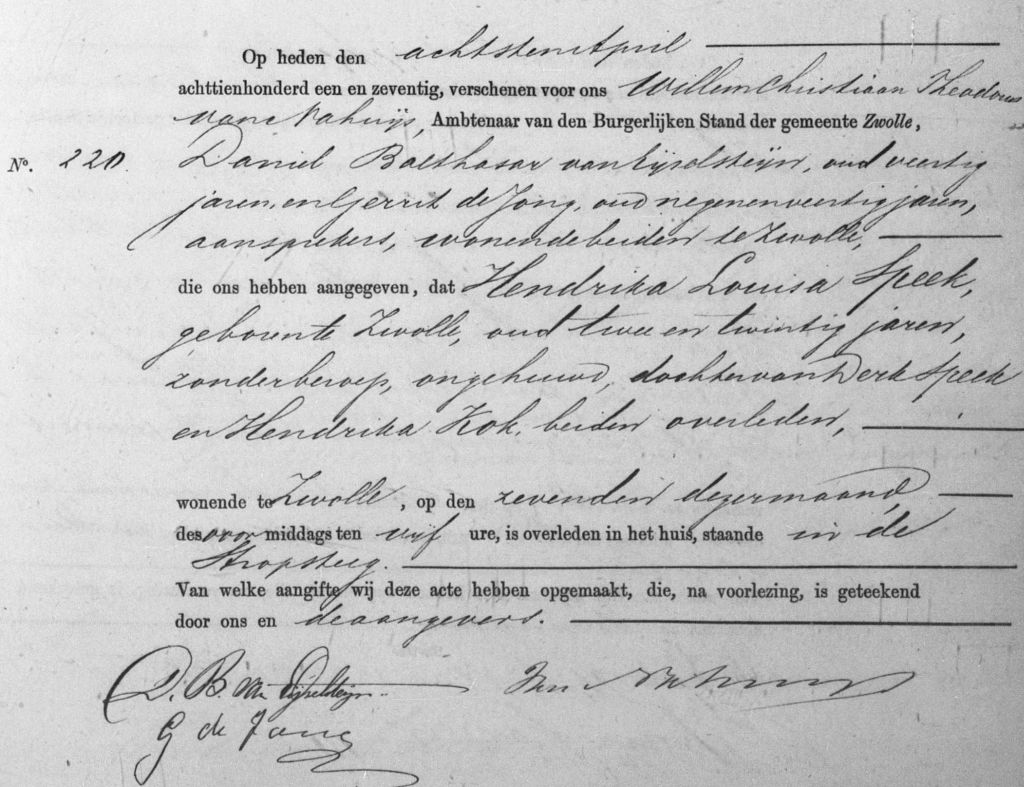 Op heden den achtsten April
achttienhonderd een en zeventig, verschenen voor ons Willem Christiaan Theodorus
van Nahuijs, Ambtenaar van den Burgerlijken Stand der gemeente Zwolle,
No. 220. Daniel Balthasar van Eijselsteijn, oud veertig
jaren, en Gerrit de Jong, oud negenenveertig jaren,
aansprekers, wonende beiden te Zwolle,
die ons hebben aangegeven, dat Hendrika Louisa Speek,
geboren te Zwolle, oud twee en twintig jaren,
zonder beroep, ongehuwd, dochter van Derk Speek
en Hendrika Kok, beiden overleden,
wonende te Zwolle, op den zevenden dezer maand
des voormiddags ten vijf ure, is overleden in het huis, staande in de
Stropsteeg.
Van welke aangifte wij deze acte hebben opgemaakt, die, na voorlezing, is geteekend
door ons en de aangevers.
D. B. van Eijselsteijn
G de Jong